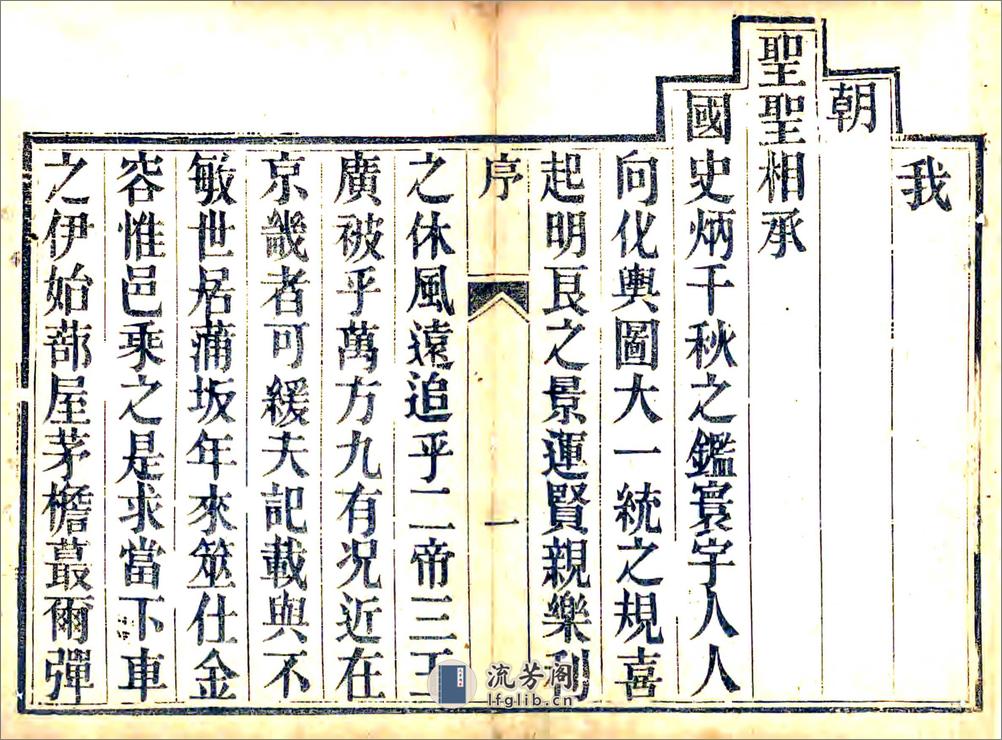 我
朝
聖聖相承
國史炳千秋之鑑寰宇人人
向化輿圖大一統之規喜
起明良之景運賢親樂利
序
一
之休風遠追乎二帝三王
廣被乎萬方九有况近在
京畿者可緩夫記載與不
敏世居蒲坂年來筮仕金
容惟邑乘之是求當下車
之伊始蔀屋茅檐蕞爾彈
流芳阁
lfglib.cn